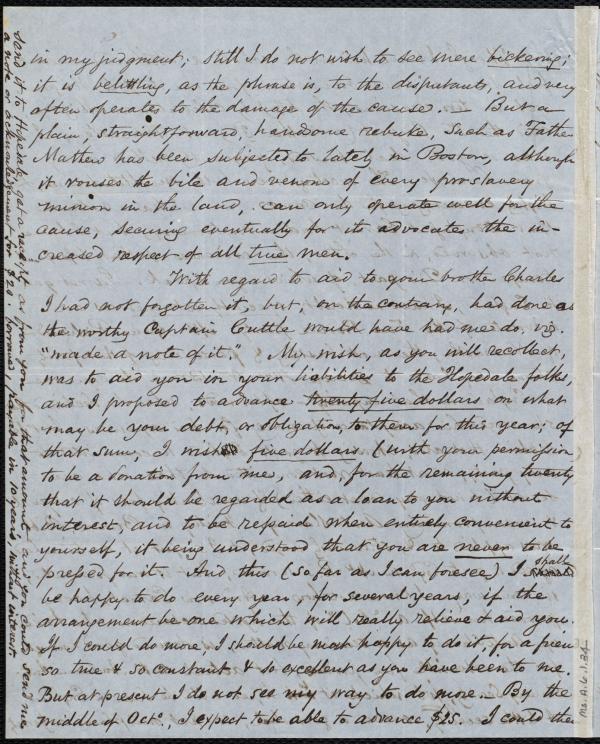 in my judgment; still I do not wish to see mere bickering;
it is belittling, as the phrase is, to the disputants, and very
often operates to the damage of the cause. — But a
plain, straightforward, handsome rebuke, such as Father
Mathew has been subjected to lately in Boston, although
it rouses the bile and venom of every proslavery
minion in the land, can only operate well for the
cause, securing eventually for its advocates the in-
creased respect of all true men.
With regard to aid to your brother Charles
I had not forgotten it, but, on the contrary, had done as
the worthy Captain Cuttle would have had me do, viz.
"made a note of it." My wish, as you will recollect,
was to aid you in your liabilities to the Hopedale folks,
and I proposed to advance twenty five dollars on what
may be your debt, or obligation, to them for this year; of
that sum, I wish five dollars (with your permission
to be a donation from me, and, for the remaining twenty
that it should be regarded as a loan to you without
interest, and to be repaid when entirely convenient to
yourself, it being understood that you are never to be
pressed for it. And this (so far as I can foresee) I shall
be happy to do every year, for several years, if the
arrangement be one which will really relieve & aid you.
If I could do more, I should be most happy to do it, for a frien
so true & so constant & so excellent as you have been to me.
But at present I do not see my way to do more. By the
middle of Octo., I expect to be able to advance $25. I could the
send it to Hopedale, get a receipt as from you for that amount, and you could send me
a note or acknowledgement for $20 borrowed, payable in 10 years, without interest
Ms. A. 6. 1. 34